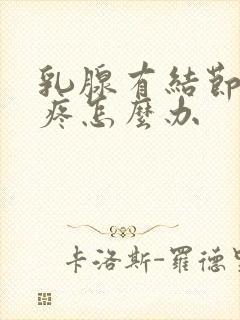 乳腺有結節
疼怎麼办
卡洛斯-羅德里